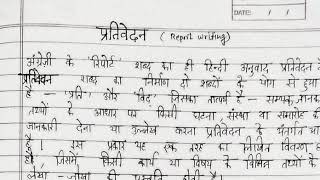 DATE: / /
प्रतिवेदन ( Report writing)
अंग्रेजी के 'रिपोर्ट' शब्द का ही हिन्दी अनुवाद प्रतिवेदन है
प्रतिवेदन शब्द का निर्माण दो शब्दों के योग से हुआ
है – 'प्रति' और 'विद्' जिसका तात्पर्य है – सम्यक् जानकारी
तथ्यों के आधार पर किसी घटना, संस्था या समारोह की
जानकारी देना या उल्लेख करना प्रतिवेदन के अंतर्गत
है। इस प्रकार यह एक तरह का लिखित विवरण
है, जिसमें किसी कार्य या विषय के विभिन्न तथ्यों के
लेखा - जोखा की प्रस्तुति होती है।